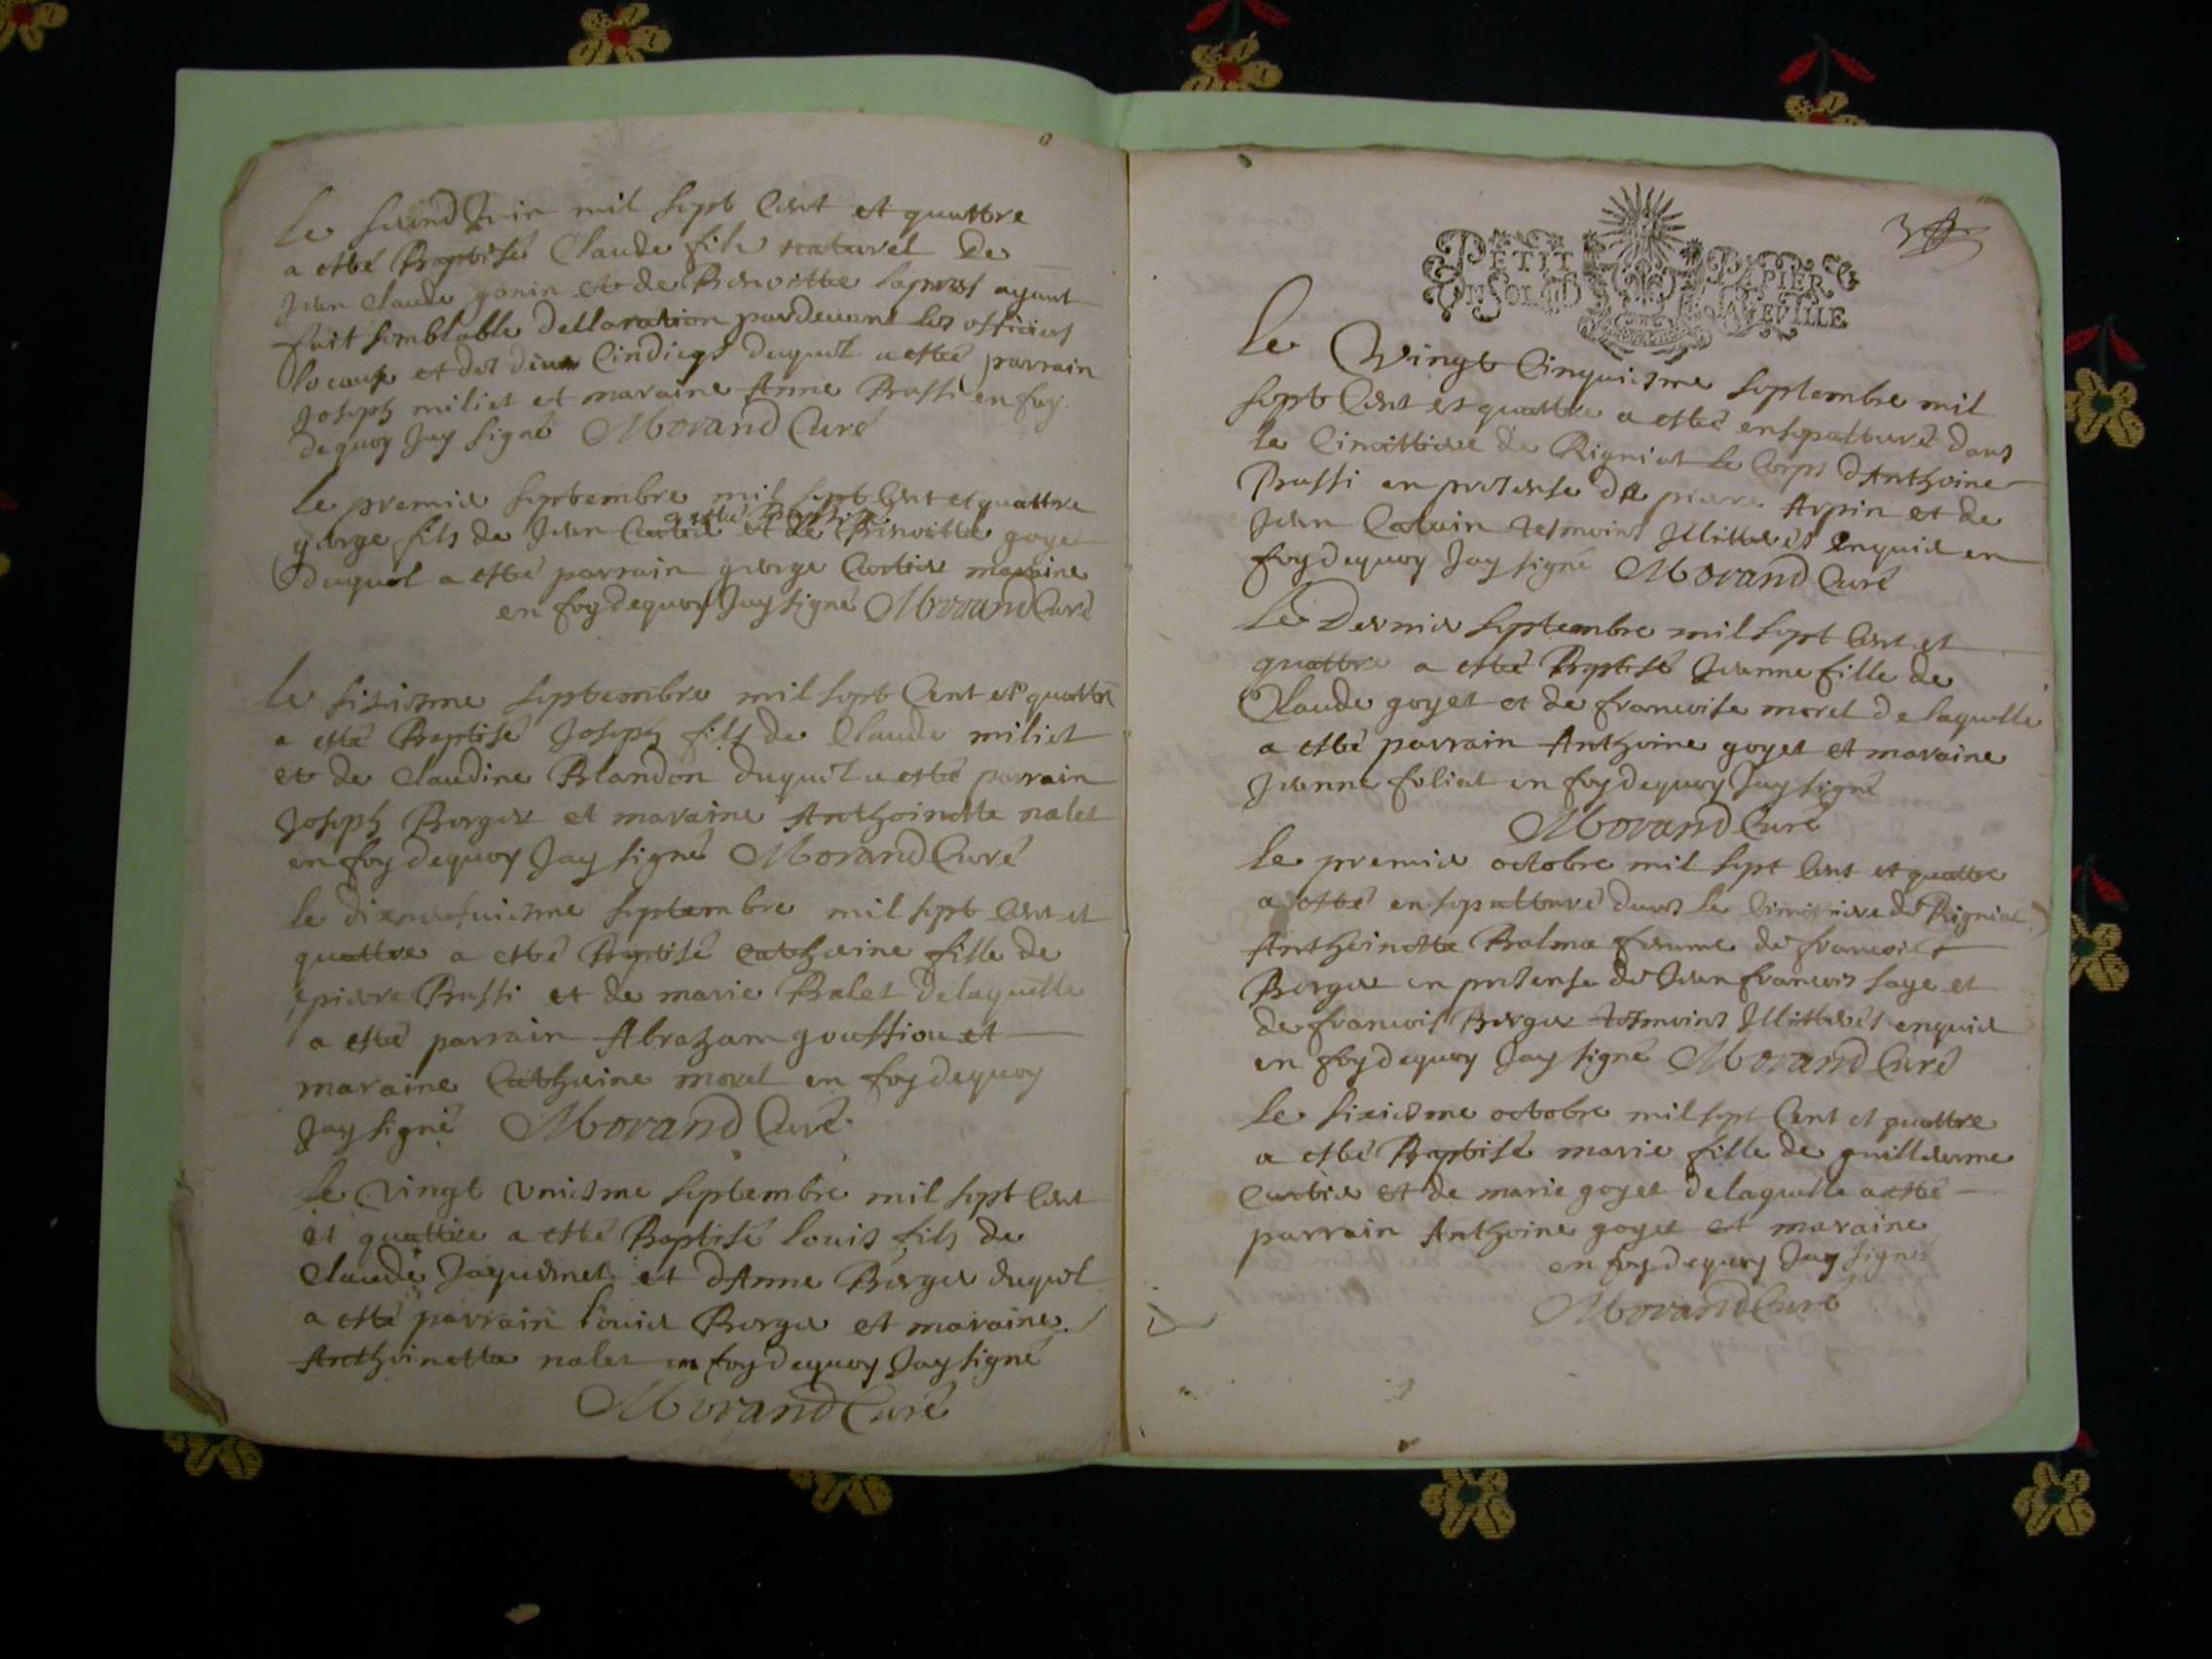 Le second Juin mil sept Cent et quattre
a esté Baptisé Claude fils naturel de
Jean Claude gonin et de Benoitte ayant
fait semblable dellaration pardevant les officiers
locaux et des Cindicqs duquel a esté parrain
Joseph miliet et maraine Anne Brussi en foy
dequoy Jay signé Morand Curé
le premier septembre mil sept Cent et quattre
a esté Baptisé
george fils de Jean Curtier et de Benoitte goyet
duquel a esté parrain george Curtier maraine
en foy dequoy Jay signé Morand Curé
le siziesme septembre mil sept Cent et quattre
a esté Baptisé Joseph fils de Claude miliet
et de Claudine Blandon duquel a esté parrain
Joseph Berger et maraine Anthoinette nalet
en foy dequoy Jay signé Morand Curé
le dixneufuiesme septembre mil sept Cent et
quattre a esté Baptisé Catherine fille de
pierre Brussi et de marie Balet delaquelle
a esté parrain Abraham gouffiou et
maraine Catherine morel en foy dequoy
Jay signé Morand Curé
le vingt uniesme septembre mil sept Cent
et quattre a esté Baptisé louis fils de
Claude Jaquemet et dAnne Berger duquel
a esté parrain louis Berger et maraine
Anthoinette nalet en foy dequoy Jay signé
Morand Curé
3
PETIT PAPIER
UN SOL LA FEVILLE
Le Vingt Cinquiesme septembre mil
sept Cent et quattre a esté ensepulturé dans
le Cimittiere de Rigniat le Corps dAnthoine
Brussi en presense de pierre Arpin et de
Jean Catuin tesmoins Illitterés enquis en
foy dequoy Jay signé Morand Curé
Le Dernier septembre mil sept Cent et
quattre a esté Baptisé Jeanne fille de
Claude goyet et de francoise morel delaquelle
a esté parrain Anthoine goyet et maraine
Jeanne foliat en foy dequoy Jay signé
Morand Curé
le premier octobre mil sept Cent et quattre
a esté ensepulturé dans le Cimitiere de Rigniat
Anthoinette Balme femme de francois
Berger en presense de Jean francois saye et
de francois Berger tesmoins Illitterés enquis
en foy dequoy Jay signé Morand Curé
le siziesme octobre mil sept Cent et quattre
a esté Baptisé marie fille de guillerme
Curtier et de marie goyet delaquelle a esté
parrain Anthoine goyet et maraine
en foy dequoy Jay signé
Morand Curé